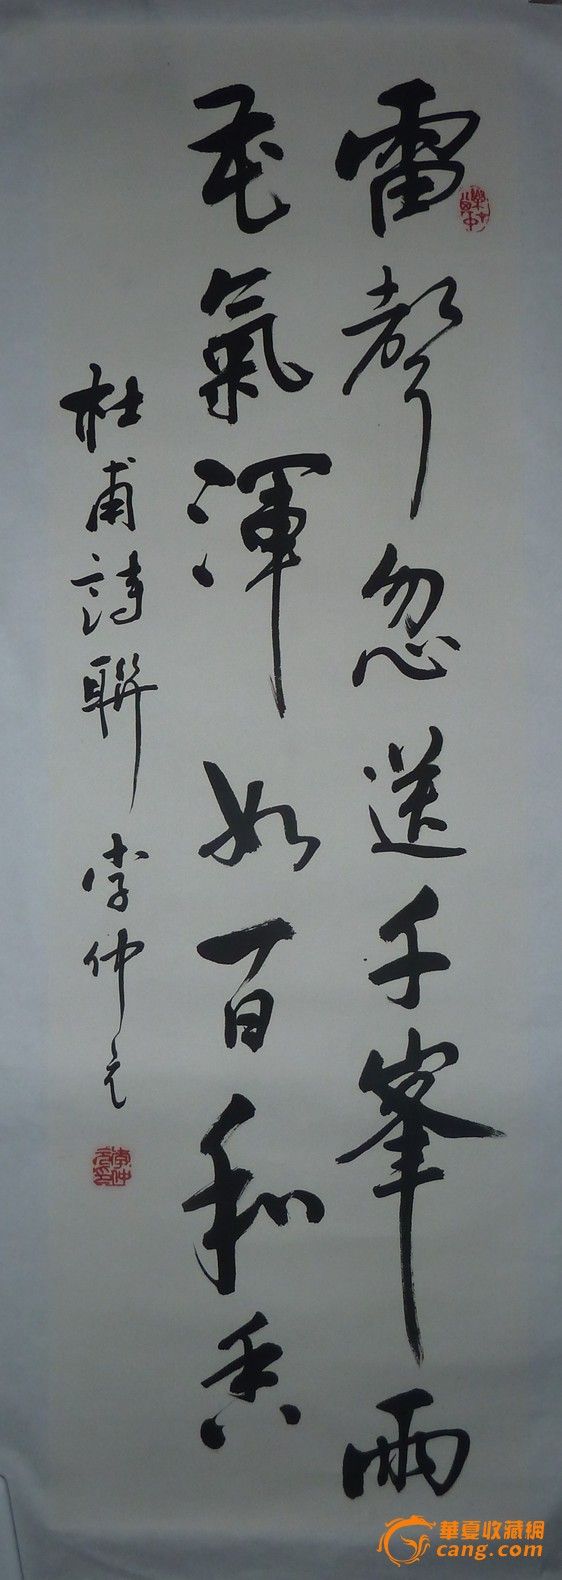 雷聲忽送千峯雨
花氣渾如百和香
杜甫詩聯 李仲元
李仲元印
華夏收藏網
cang.com